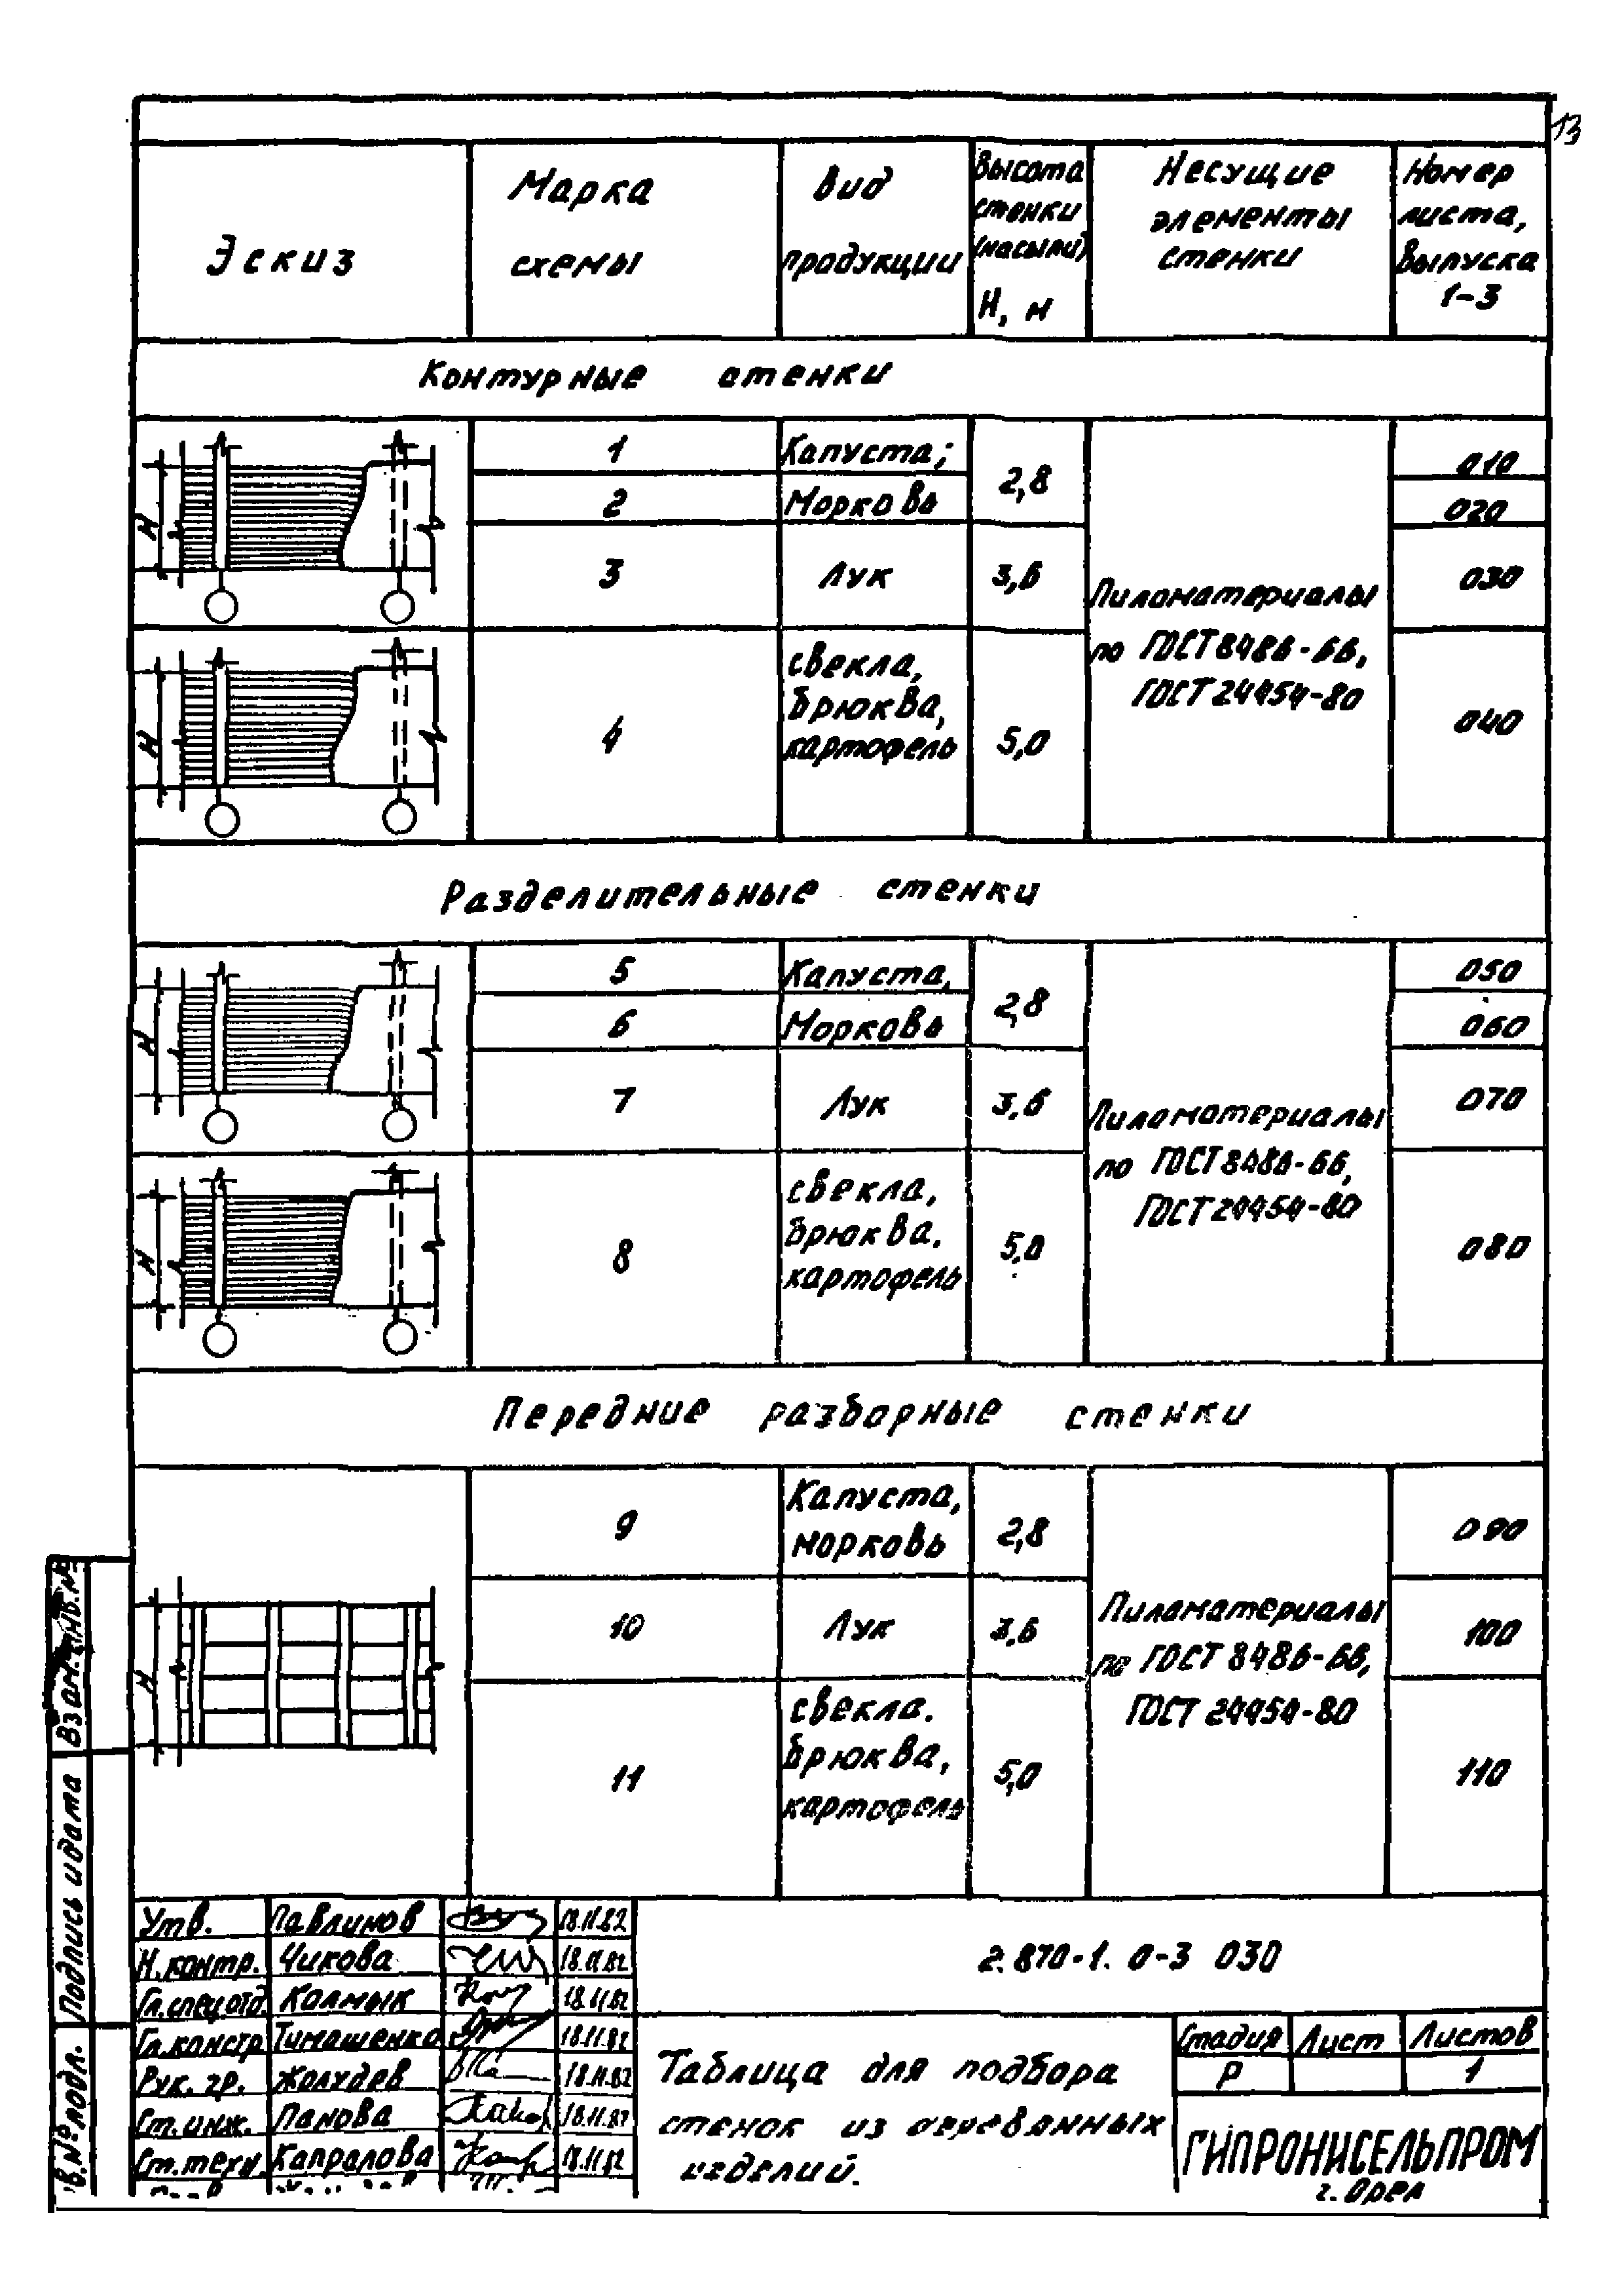 13
Эскиз
Марка
схемы
Вид
продукции
Высота
стенки
(насыпи)
Н, м
Несущие
элементы
стенки
Номер
листа,
выпуска
1-3
Контурные стенки
Н
1 Капуста; 2,8 010
2 Морковь 020
3 Лук 3,6 030
Пиломатериалы
по ГОСТ 8486-66,
ГОСТ 24454-80
Н
4 свекла, брюква, картофель 5,0 040
Разделительные стенки
Н
5 Капуста, 2,8 050
6 Морковь 060
7 Лук 3,6 070
Пиломатериалы
по ГОСТ 8486-66,
ГОСТ 24454-80
Н
8 свекла, брюква, картофель 5,0 080
Передние разборные стенки
Н
9 Капуста, морковь 2,8 090
10 Лук 3,6 100
Пиломатериалы
по ГОСТ 8486-66,
ГОСТ 24454-80
11 свекла. брюква, картофель 5,0 110
Взам. инв. №
Подпись и дата
в. № подл.
Утв. Павлинов 18.11.82
Н. контр. Чикова 18.11.82
Гл. спец отд. Колмык 18.11.82
Гл. констр Тимашенко 18.11.82
Рук. гр. Жолудев 18.11.82
Ст. инж. Панова 18.11.82
Ст. техн. Капралова 18.11.82
2.870-1. 0-3 030
Таблица для подбора
стенок из деревянных
изделий.
Стадия Лист Листов
Р 1
ГИПРОНИСЕЛЬПРОМ
г. Орел